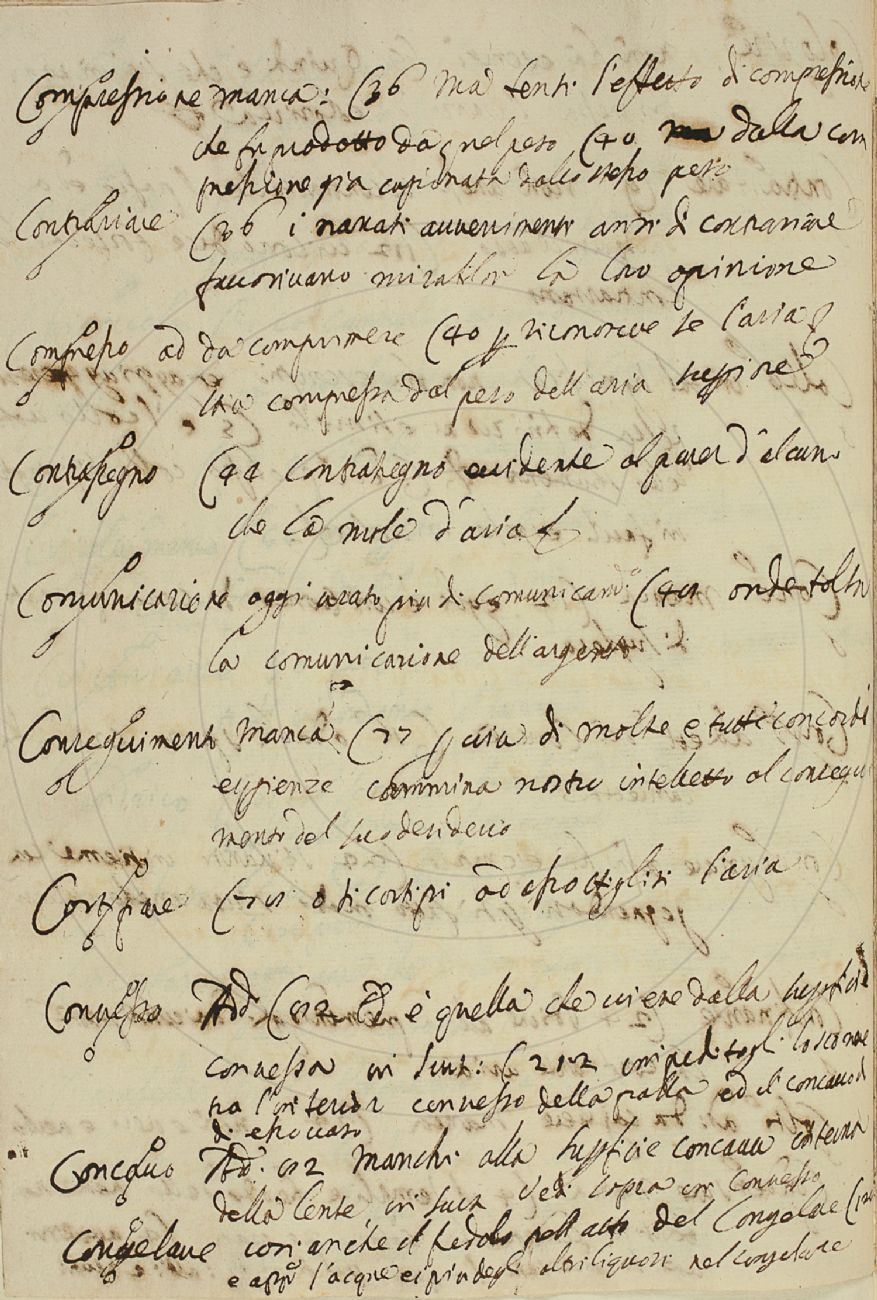 Compressione manca: (36 Ma senti l'effetto di compressione
che fu prodotto da quel peso (40 dalla com
pressione già cagionata dallo stesso peso
Contrariare (36 i narrati avvenimenti anzi di contrariare
favorivano mirabilm la loro opinione
Compresso ad da comprimere (40 p riconoscere se l'aria
sia compressa dal peso dell aria suppiore
Contrasegno (44 contrasegno evidente al parer d'alcuni
che la mole d'aria
Comunicazione oggi usato piu di comunicam.º onde tolta
la comunicazione dell'argento
Conseguimento manca (77 p via di molte e tutte concordi
esperienze cammina nostro intelletto al consegui
mento del suo desiderio
ad assottiglisi l'aria
Convesso Add è quella che viene dalla suppficie
convessa in Sust: (212 impeditogli lo scorrere
tra l'interior convesso della palla ed il concavo d
di essovaso
Concavo Ad. manchi alla suppficie concava esterna
della lente in Sust Vedi sopra in Convesso
Congelare cosi anche il freddo nell atto del Congelare
l'acque e i piu degli altri liquori nel congelare